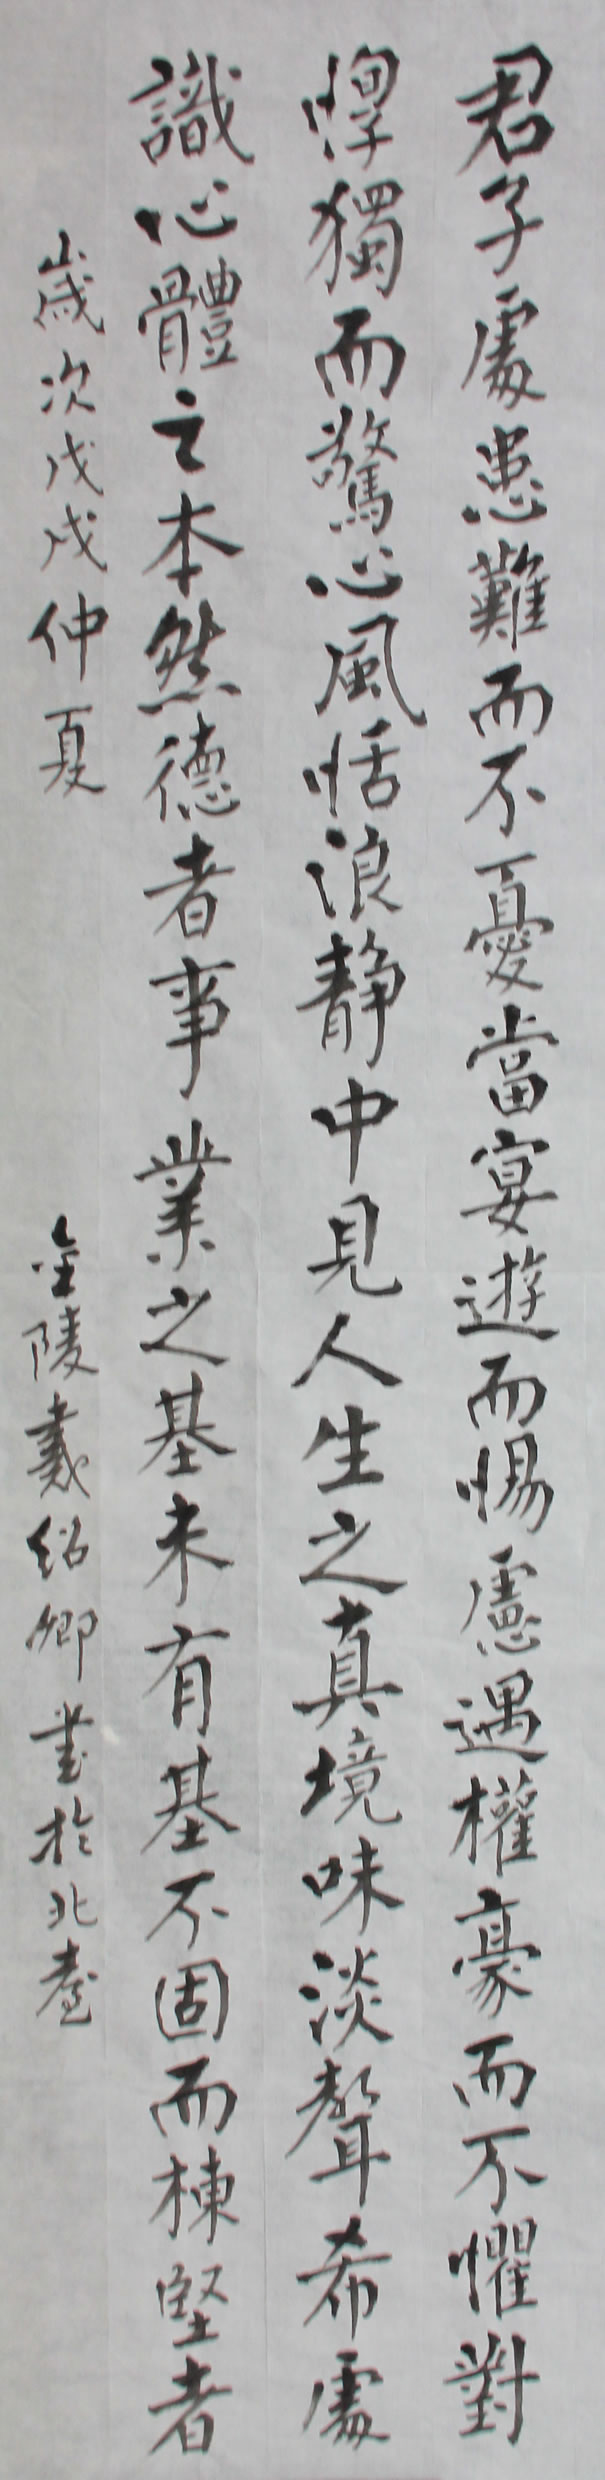 君子處患難而不憂當宴遊而惕慮遇權豪而不懼對
惸獨而驚心風恬浪静中見人生之真境味淡聲希處
識心體之本然德者事業之基未有基不固而棟堅者
歲次戊戌仲夏
金陵戴紹卿書於北臺